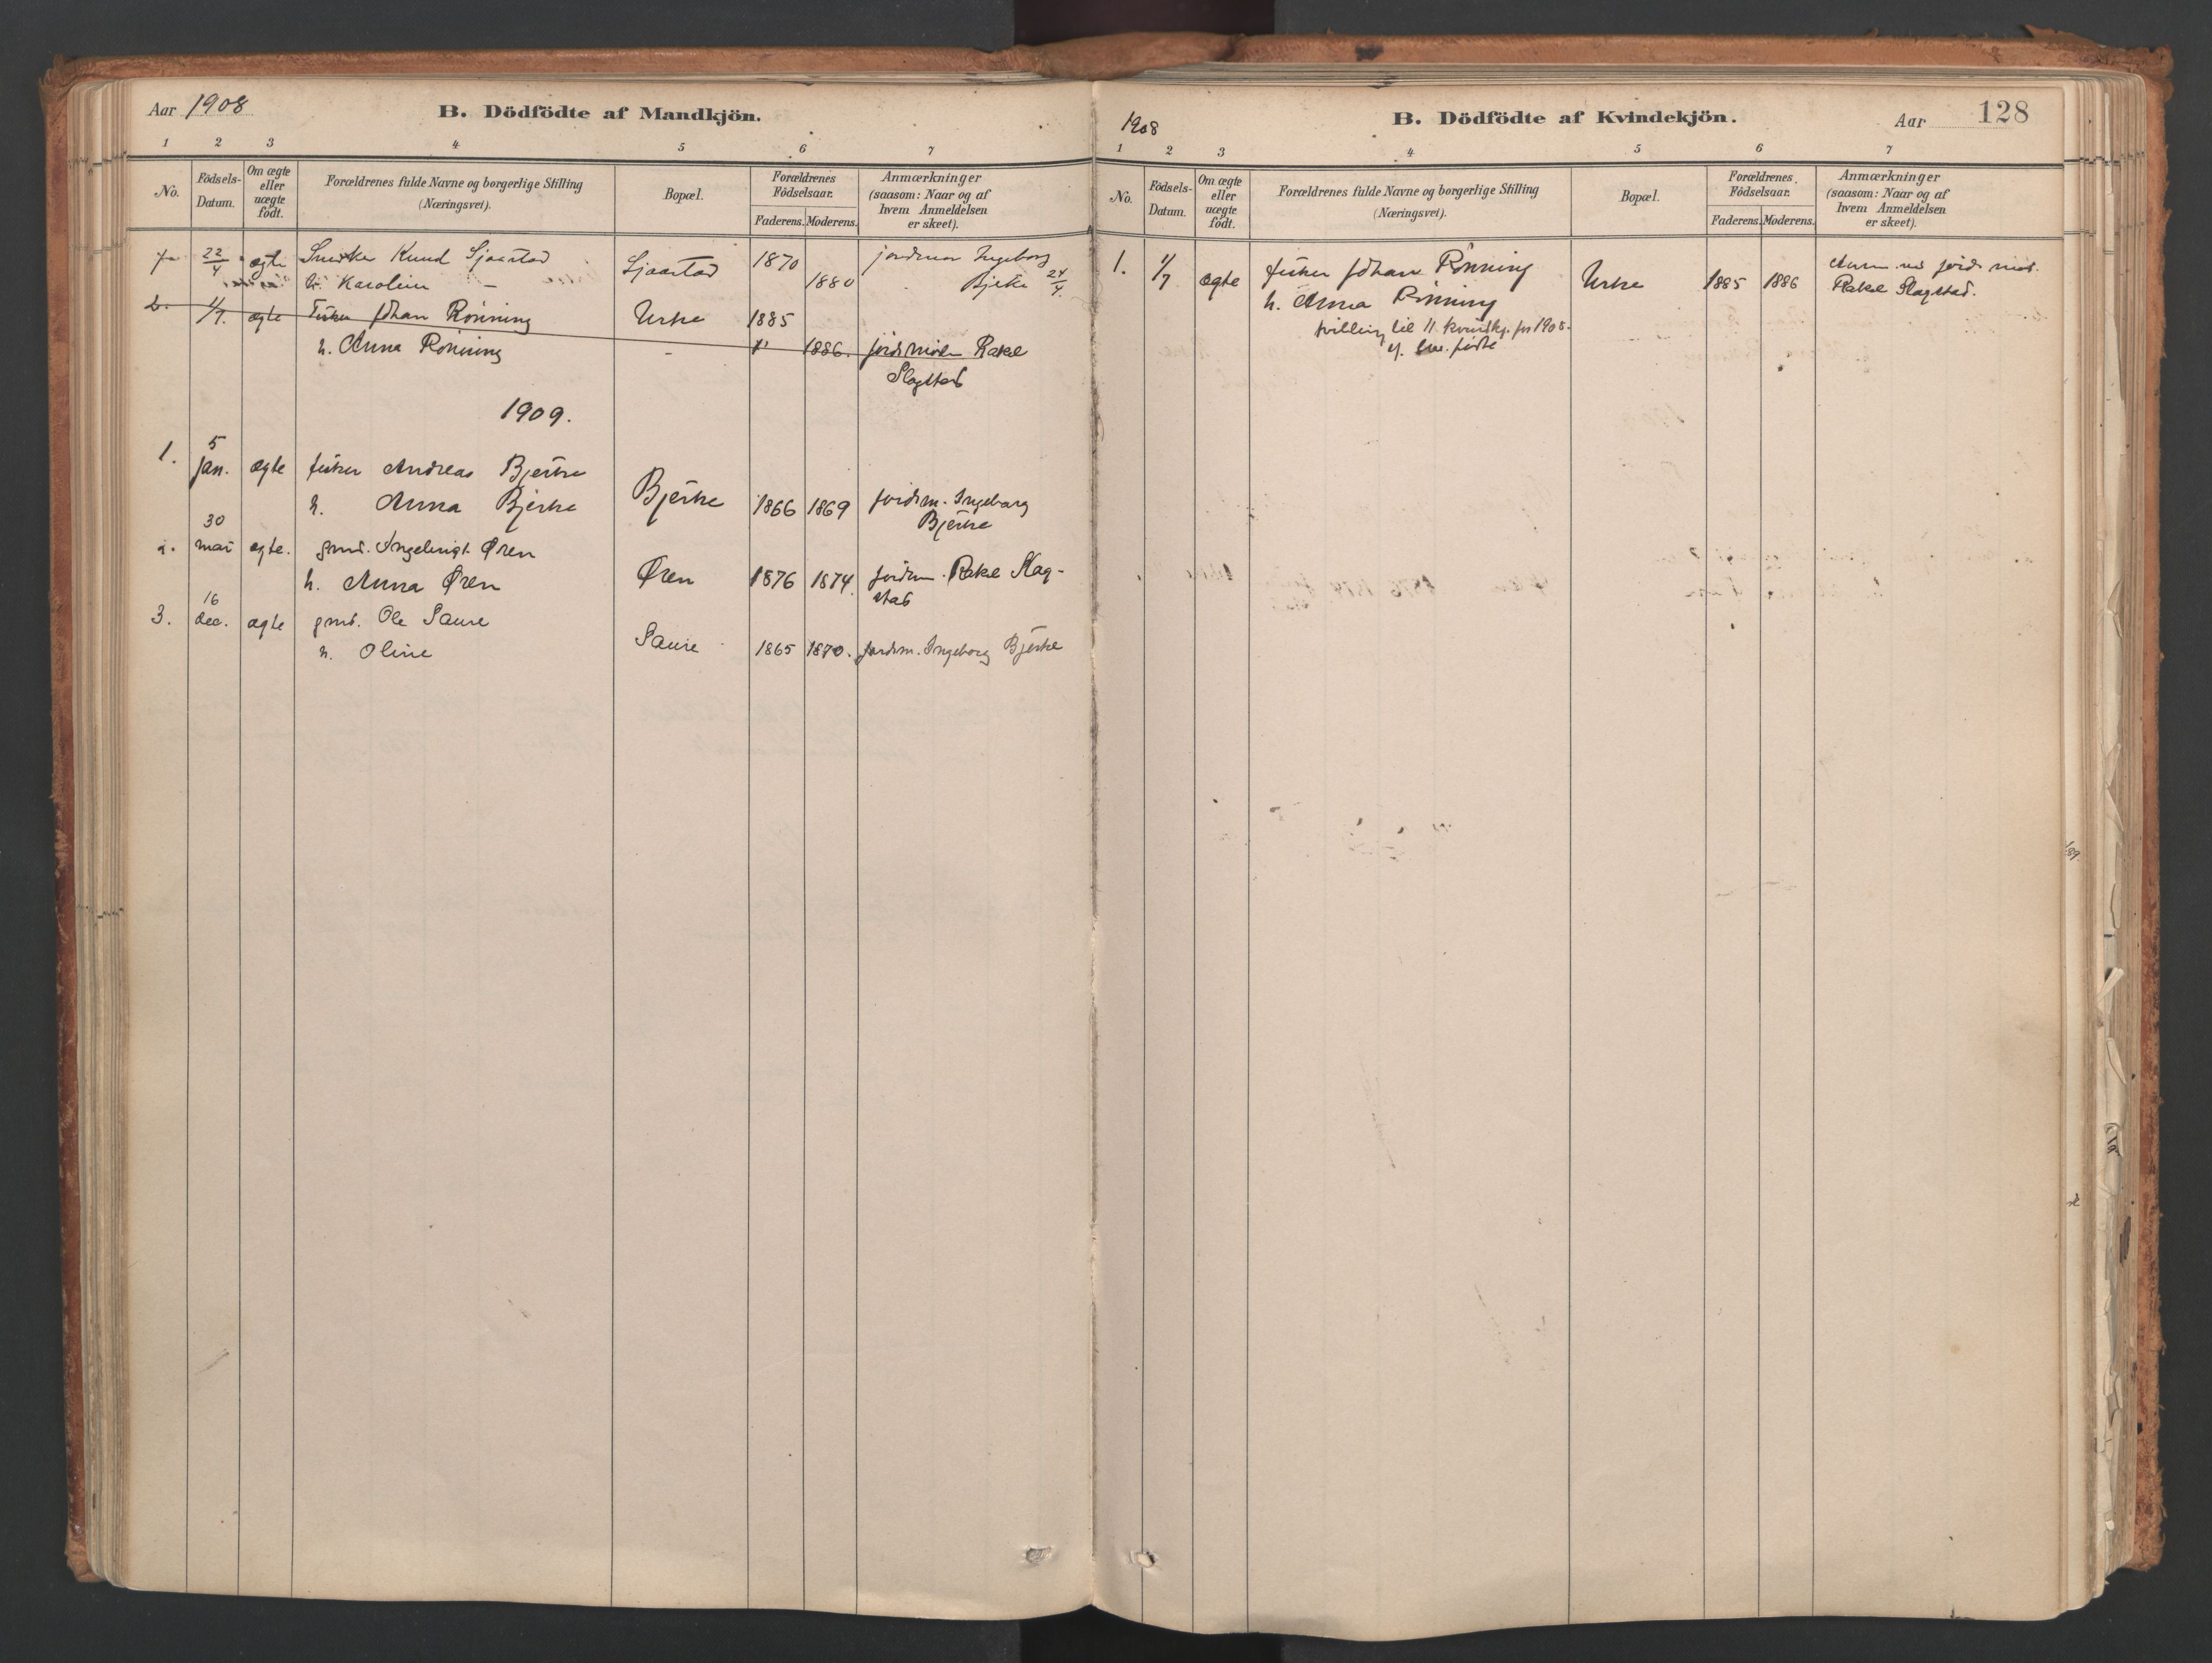 Aar 1908
B. Dödfödte af Mandkjön.
1 2 3 4 5 6 7
No.
Födsels-Datum.
Om ægte eller uægte födt.
Forældrenes fulde Navne og borgerlige Stilling
(Næringsvei).
Bopæl.
Forældrenes Födselsaar.
Faderens. Moderens.
Anmærkninger
(saasom: Naar og af
hvem Anmeldelsen
er skeet).
22/4 ægte Snedker Knud Sjaastad Sjaastad 1870 jordmor Ingeborg
h. Karoline - 1880 Bjerke 24/4.
2. 1/7. ægte Fisker Johan Rönning Urke 1885
h. Anna Rönning - 1886. jordmoder Rakel
Slagstad
1909.
1. 5 jan. ægte fisker Andreas Bjerke
h. Anna Bjerke Bjerke 1866 1869 jordm. Ingeborg
Bjerke
2. 30 mai ægte. gmd. Ingebrigt Øren
h. Anna Øren Øren 1876 1874. jordm. Rakel Slag-
stad
3. 16 dec. ægte gmd. Ole Saure
h. Oline Saure 1865 1870. jordm. Ingeborg Bjerke
1908
B. Dödfödte af Kvindekjön.
Aar 128
1 2 3 4 5 6 7
No.
Födsels-Datum.
Om ægte eller uægte födt.
Forældrenes fulde Navne og borgerlige Stilling
(Næringsvei).
Bopæl.
Forældrenes Födselsaar.
Faderens. Moderens.
Anmærkninger
(saasom: Naar og af
hvem Anmeldelsen
er skeet).
1. 1/7 ægte fisker Johan Rönning Urke 1885 1886 Anm. ved jordmod.
h. Anna Rönning Rakel Slagstad.
tvilling til 11 kvindkj. for 1908.
af lev. födte